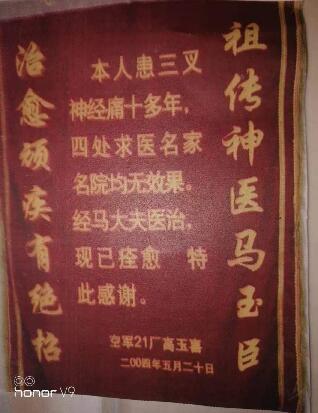 祖传神医马玉臣
本人患三叉
神经痛十多年，
四处求医名家
名院均无效果。
经马大夫医治，
现已痊愈 特
此感谢。
治愈顽疾有绝招
空军21厂高玉喜
二00四年五月二十日
honor V9